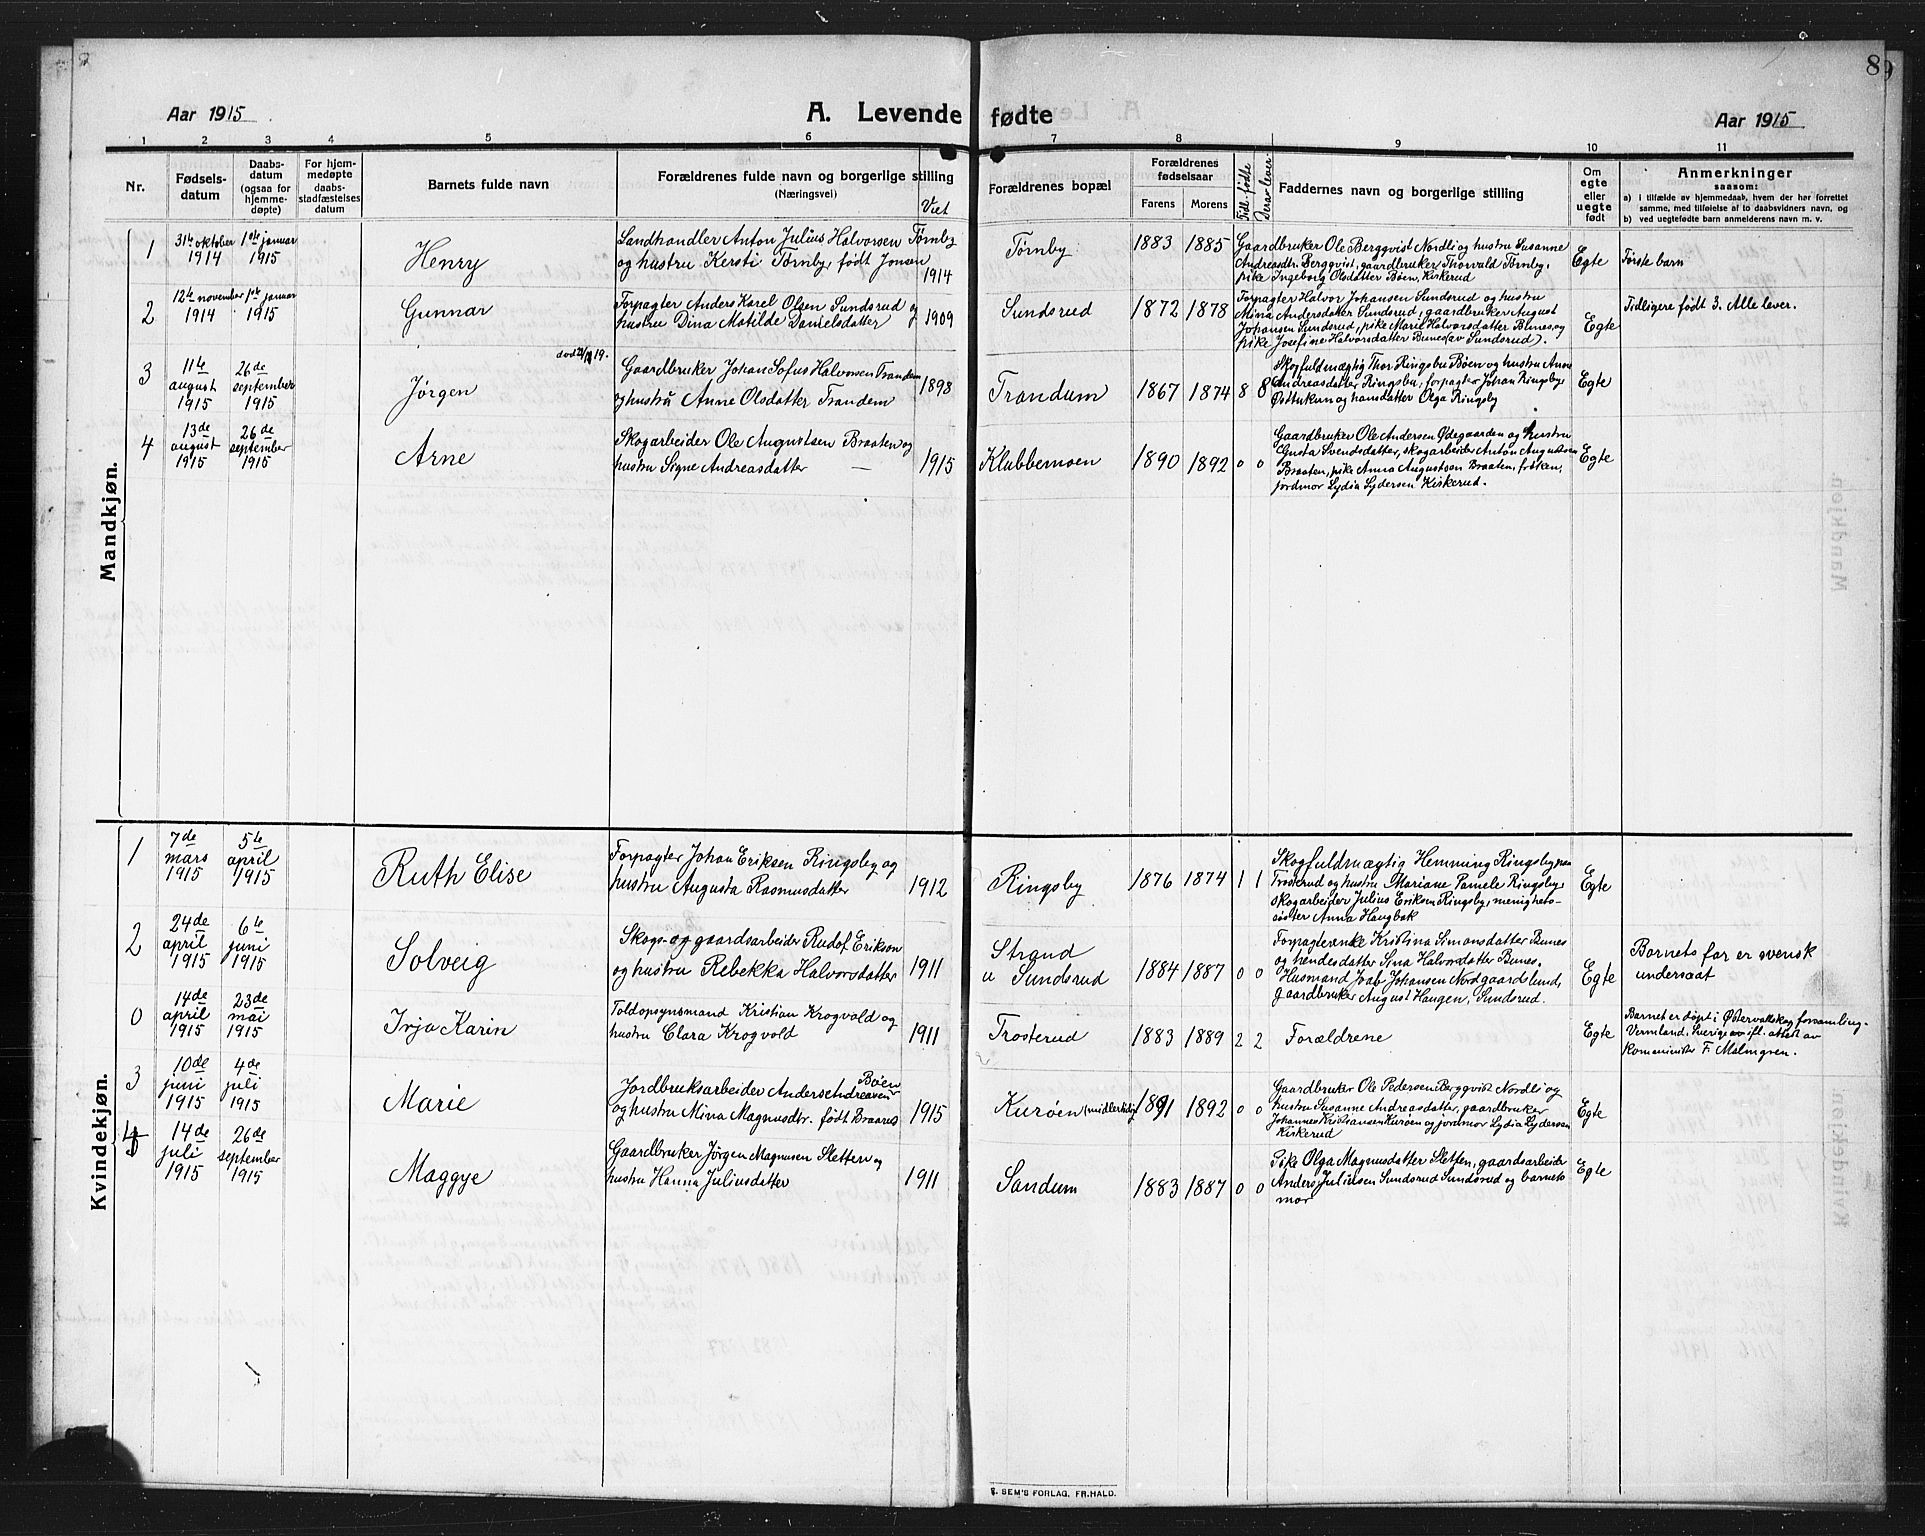 8
Aar 1915
A. Levende fødte
Aar 1915
1 2 3 4 5 6 7 8 9 10 11
Nr.
Fødsels-
datum
Daabs-
datum
(ogsaa for
hjemme-
døpte)
For hjem-
medøpte
daabs-
stadfæstelses
datum
Barnets fulde navn
Forældrenes fulde navn og borgerlige stilling
(Næringsvei)
Viet
Forældrenes bopæl
Forældrenes
fødselsaar
Farens Morens
Tidl. fødte
Derav lever
Faddernes navn og borgerlige stilling
Om
egte
eller
uegte
født
Anmerkninger
saasom:
a) i tilfælde av hjemmedaab, hvem der har forrettet
samme, med tilføielse af to daabsvidners navn, og
b) ved uegtefødte barn anmelderens navn m. v.
Mandkjøn.
1
31te oktober
1914
1ste januar
1915
Henry
Landhandler Anton Julius Halvorsen Tørnby
og hustru Kersti Tørnby, født Jonsen
1914
Tørnby
1883 1885
Gaardbruker Ole Bergqvist Nordli og hustru Susanne
Andreasdtr. Bergqvist, gaardbruker Thorvald Tørnby,
pike Ingeborg Olsdatter Bøen, Kirkerud
Egte
Første barn
2
12te november
1914
1ste januar
1915
Gunnar
Forpagter Anders Karel Olsen Sundsrud og
hustru Dina Matilde Danielsdatter
1909
Sundsrud
1872 1878
Forpagter Halvor Johansen Sundsrud og hustru
Mina Andersdatter Sundsrud, gaardbruker August
Johansen Sundsrud, pike Marie Halvorsdatter Bunes, og
pike Josefine Halvorsdatter Bunes (av Sundsrud).
Egte
Tidligere født 3. Alle lever.
3
11te
august
1915
26de
september
1915
Jørgen
Gaardbruker Johan Sofus Halvorsen Trandem
og hustru Anne Olsdatter Trandem
1898
Trandum
1867 1874 8 8
Skogfuldmægtig Thor Ringsby Bøen og hustru Anne
Andreasdatter Ringsby, forpagter Johan Ringsby
og hans datter Olga Ringsby
Egte
4
13de
august
1915
26de
september
1915
Arne
Skogarbeider Ole Augustsen Braaten og
hustru Signe Andreasdatter —
1915
Klubbemoen
1890 1892 0 0
Gaardbruker Ole Andersen Ødegaarden og hustru
Gusta Svendsdatter, skogarbeider Anton Augustsen
Braaten, pike Anna Augustsen Braaten, frøken,
jordmor Lydia Sydersen Kirkerud.
Egte
Kvindekjøn.
1
7de
mars
1915
5te
april
1915
Ruth Elise
Forpagter Johan Eriksen Ringsby og
hustru Augusta Rasmusdatter
1912
Ringsby
1876 1874 1 1
Skogfuldmægtig Hemming Ringsby
Trosterud og hustru Mariane Pamele Ringsby,
skogarbeider Julius Eriksen Ringsby, menighets-
søster Anna Haugbak
Egte
2
24de
april
1915
6te
juni
1915
Solveig
Skogs- og gaardsarbeider Rudof Erikson
og hustru Rebekka Halvorsdatter
1911
Strand
u Sundsrud
1884 1887 0 0
Forpagterenke Kristina Simonsdatter Bunes
og hendes datter Sina Halvorsdatter Bunes.
Husmand Joab Johansen Nordgaardlund,
gaardbruker August Haugen, Sundsrud.
Egte
Barnets far er svensk
undersaat
0
14de
april
1915
23de
mai
1915
Irja Karin
Toldopsynsmand Kristian Krogvold og
hustru Clara Krogvold
1911
Trosterud
1883 1889 2 2
Forældrene
Egte
Barnet er døpt i Østervallskog forsamling.
Vermland. Sverige av ifl. attest av
Komminister F. Malmgren.
3
10de
juni
1915
4de
juli
1915
Marie
Jordbruksarbeider Anders Andreasen Bøen
og hustru Mina Magnusdtr. født Braarud
1915
Kurøen (midlertidig)
1891 1892 0 0
Gaardbruker Ole Pedersen Bergqvist Nordli og
hustru Susanne Andreasdatter, gaardbruker
Johannes Kristiansen Kurøen og jordmor Lydia Lydersen
Kirkerud
Egte
4
14de
juli
1915
26de
september
1915
Maggye
Gaardbruker Jørgen Magnusen Sletten og
hustru Hanna Juliusdatter
1911
Sandum
1883 1887 0 0
Pike Olga Magnusdatter Sletten, gaardsarbeider
Anders Juliusen Sundsrud Sundsrud og barnets
mor
Egte
E. SEM'S FORLAG, FR.HALD.